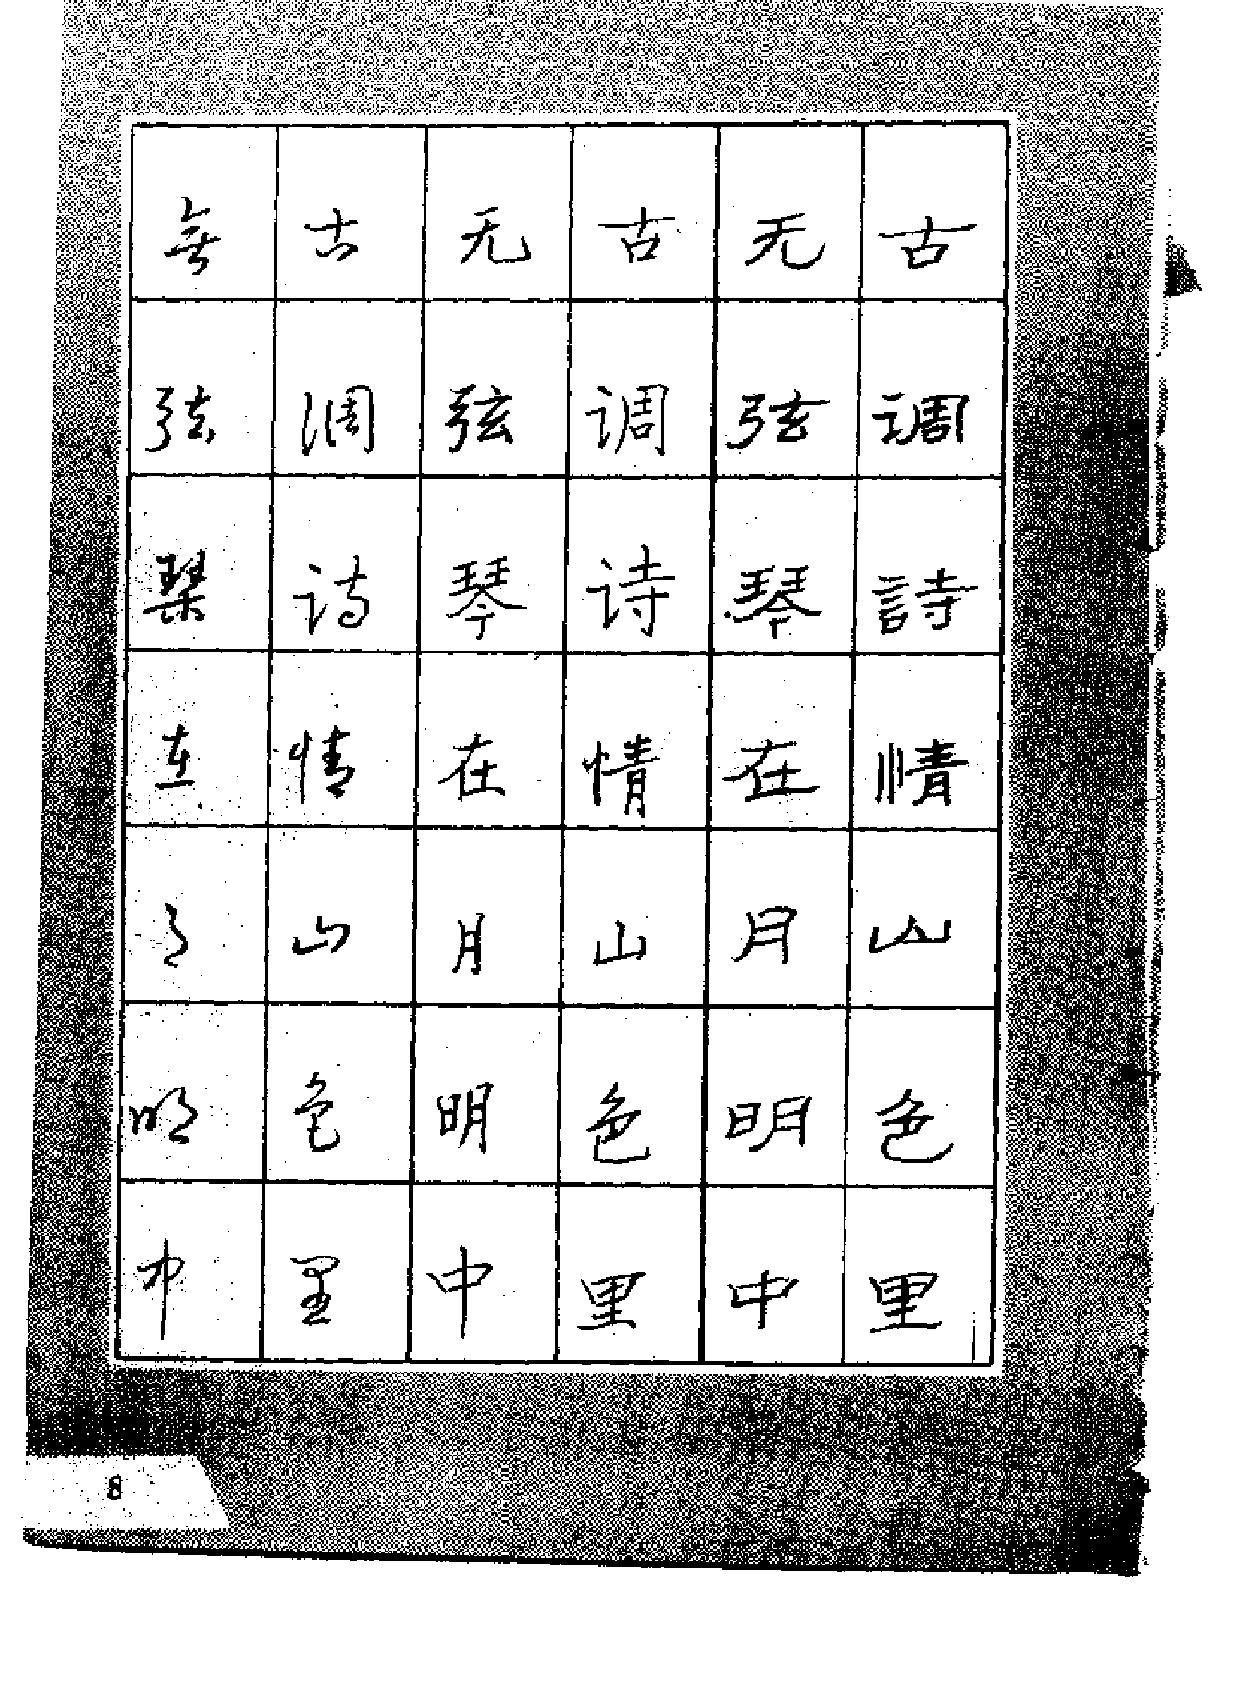 古调詩情山色里
无弦琴在月明中
古调诗情山色里
无弦琴在月明中
古调诗情山色里
無弦琴在月明中
8